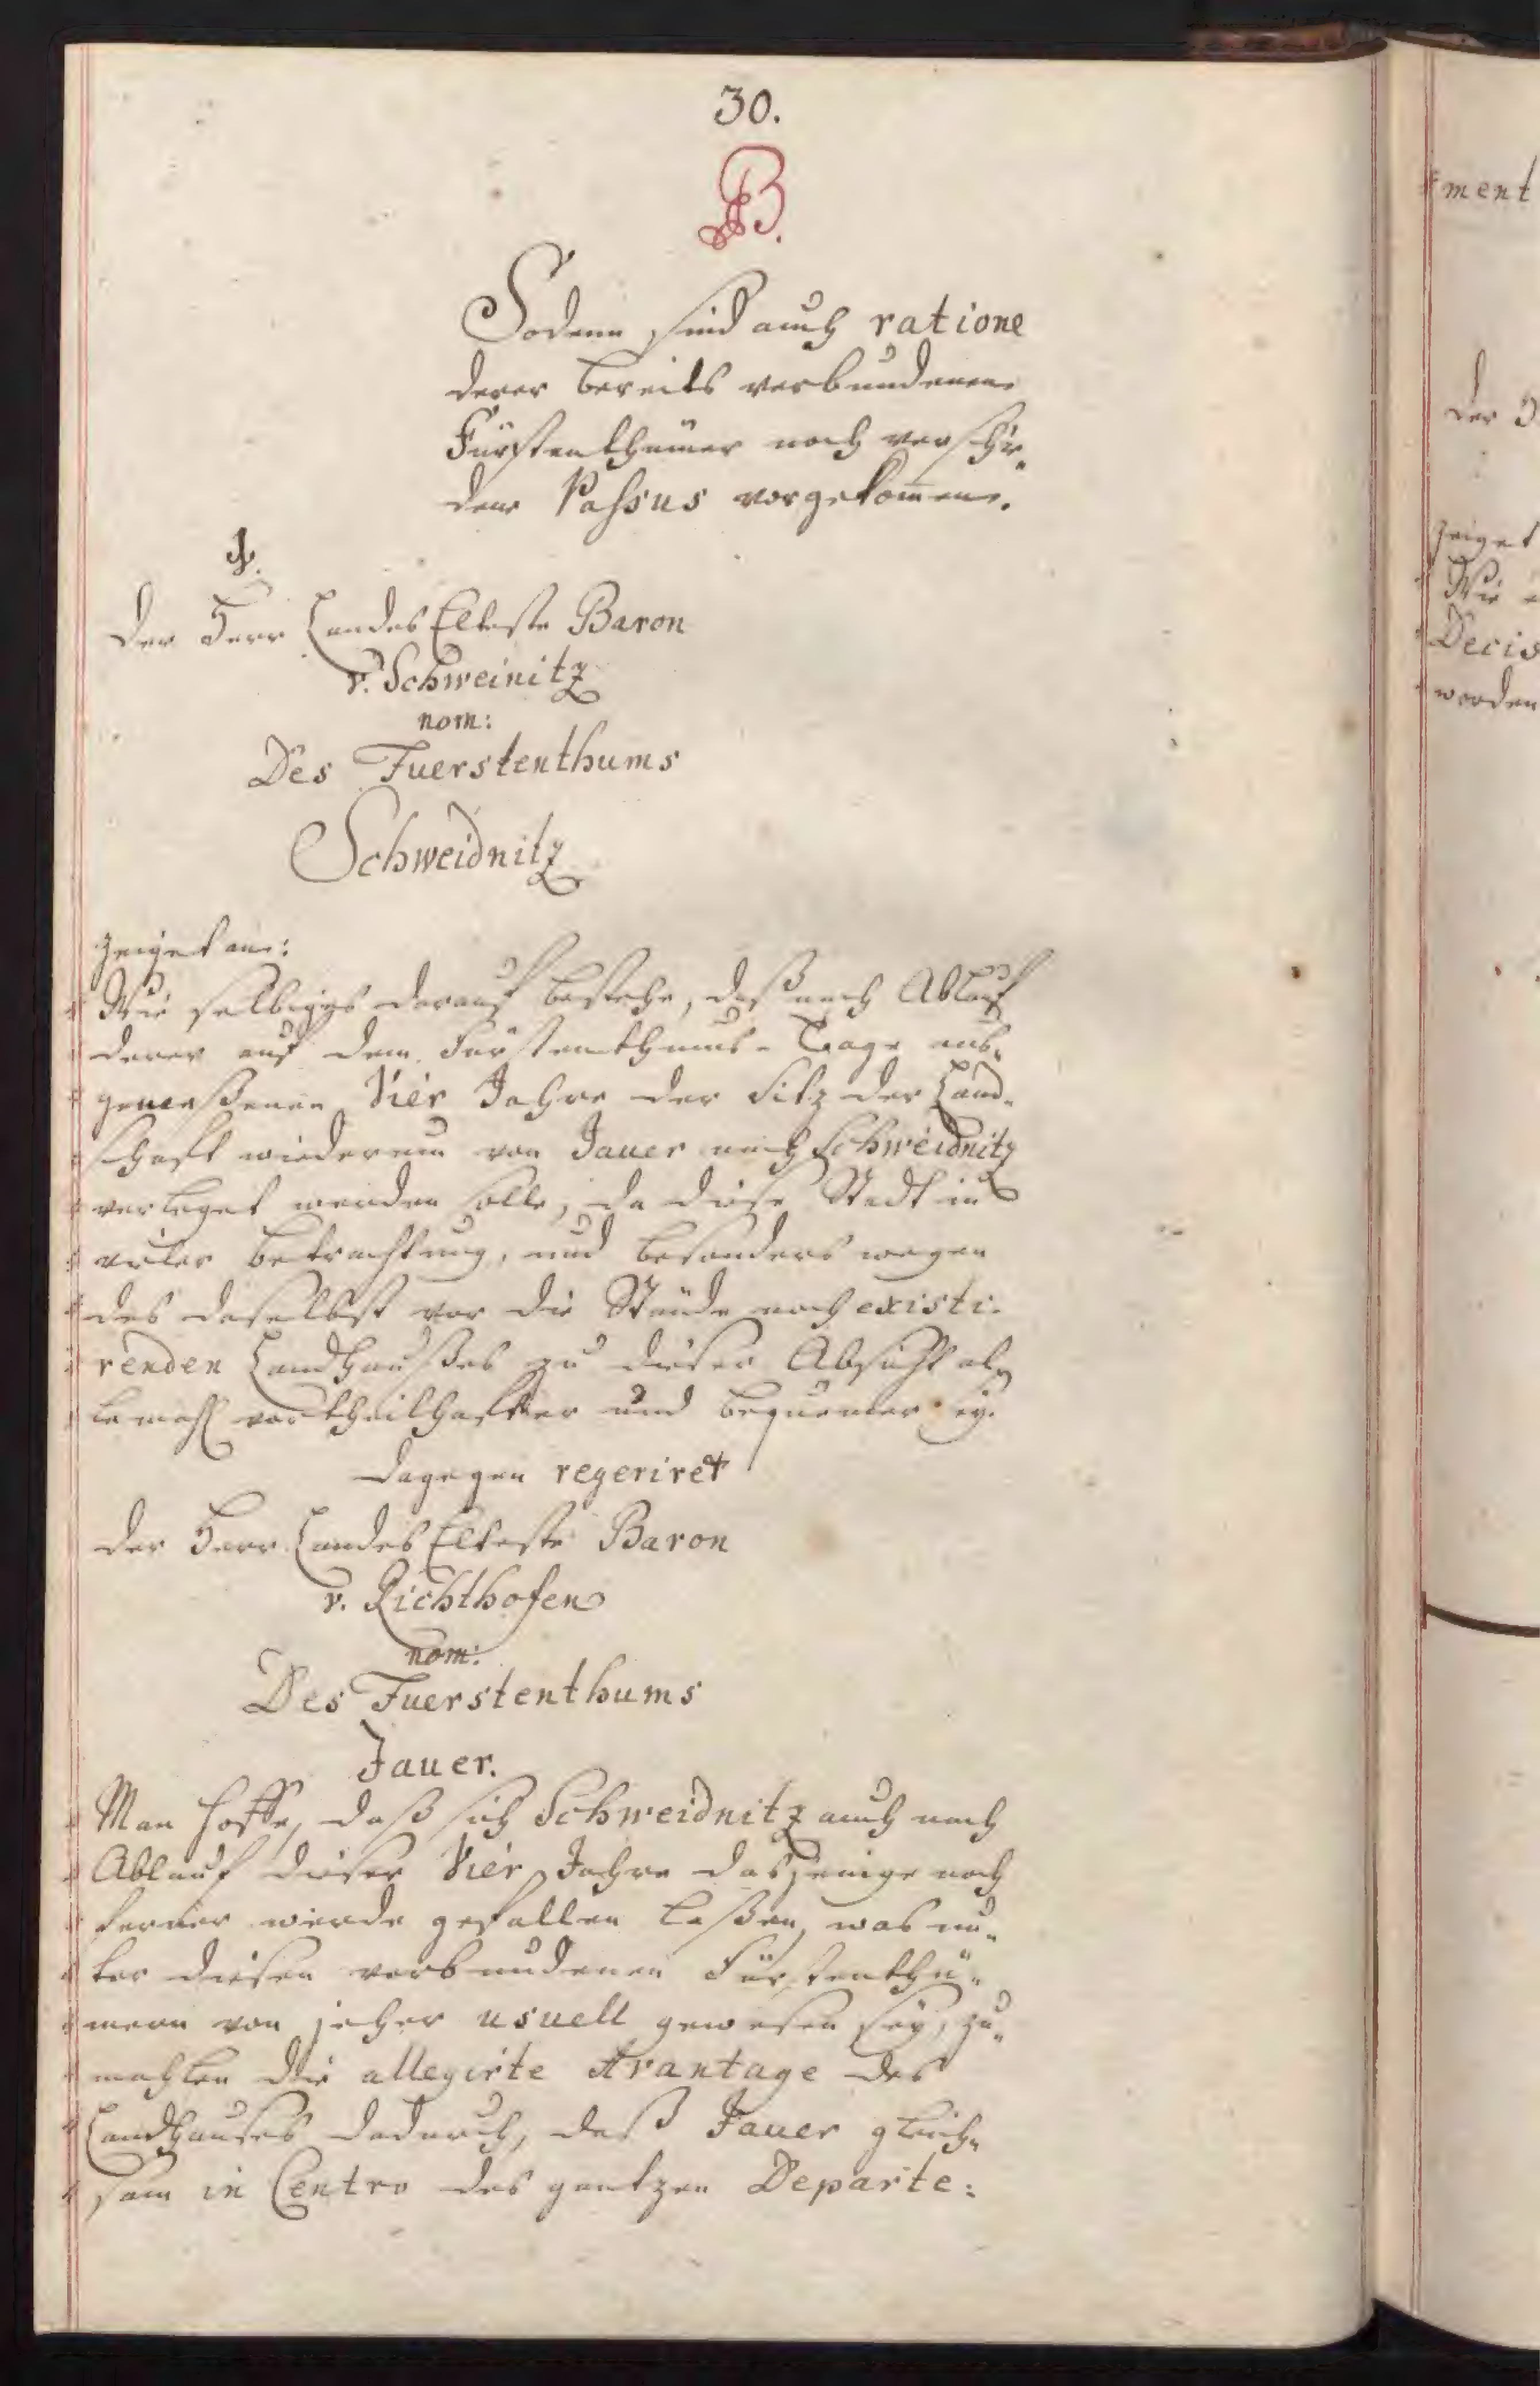 30.
B.
Sodenn sind auch ratione
derer bereits verbundenen
Fürstenthümer noch verschie„
dene Passus vorgekom̄en.
1.
Der Herr Landes Elteste Baron
v. Schweinitz
nom:
Des Fuerstenthums
Schweidnitz
zeiget an:
Wie selbiges darauf bestehe, daß nach Ablauf
derer auf dem Fürstenthums-Tage aus„
gemeßenen Vier Jahre der Sitz der Land„
schaft wiederum von Jauer nach Schweidnitz
verleget werden solle, da diese Stadt in
vieler betrachtung, und besonders wegen
des daselbst vor die Stände noch existi:
renden Landhaußes zu dieser Absicht al„
lemahl vortheilhafter und bequemer sey.
Dagegen regeriret
Der Herr Landes Elteste Baron
v. Richthofen
nom:
Des Fuerstenthums
Jauer.
Man hoffe, daß sich Schweidnitz auch nach
Ablauf dieser Vier Jahre dasjenige noch
ferner werde gefallen laßen, was un„
ter diesen verbundenen Fürstenthü„
mern von jeher usuell gewesen sey, zu„
mahlen die allegirte Avantage des
Landhauses dadurch, daß Jauer gleich„
sam in Centro des gantzen Departe:
ment
Der
zeiget
Wie
Decis
worden